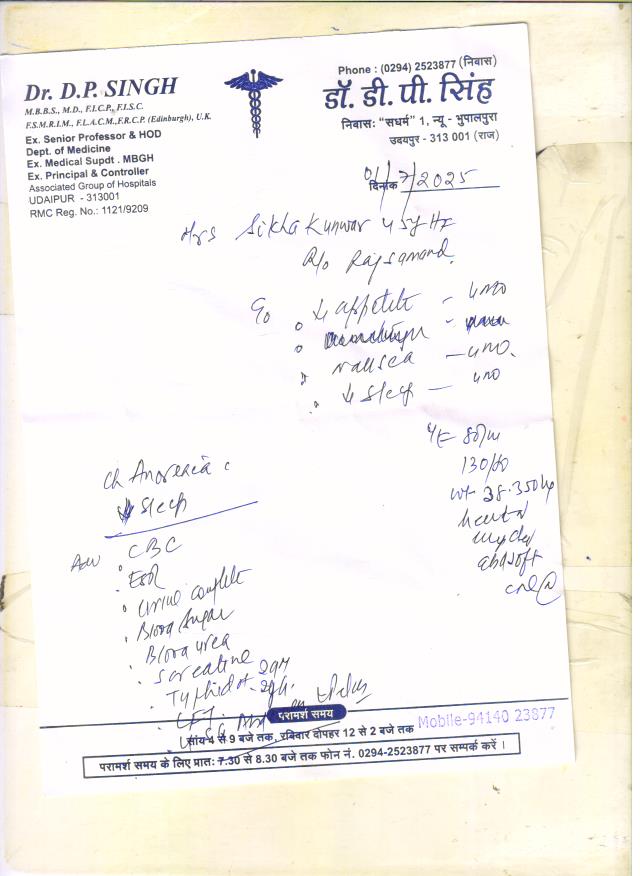 Dr. D.P. SINGH
M.B.B.S., M.D., F.I.C.P., F.I.S.C.
F.S.M.R.I.M., F.L.A.C.M.,F.R.C.P. (Edinburgh), U.K.
Ex. Senior Professor & HOD
Dept. of Medicine
Ex. Medical Supdt. MBGH
Ex. Principal & Controller
Associated Group of Hospitals
UDAIPUR - 313001
RMC Reg. No.: 1121/9209
Phone : (0294) 2523877 (निवास)
डॉ. डी. पी. सिंह
निवासः "सधर्म" 1, न्यू - भुपालपुरा
उदयपुर - 313 001 (राज)
दिनांक 01/7/2025
Mrs Sikha Kunwar 45y
R/o Rajsamand
↓ appetite -
nausea -
↓ Sleep -
80/m
130/80
wt 38.350kg
heart N
abd soft
Anorexia c
↓ Sleep
Adv
CBC
ESR
Urine complete
Blood Sugar
Blood urea
S creatine
Typhidot -
LFT
परामर्श समय
सांय 4 से 9 बजे तक, रबिवार दोपहर 12 से 2 बजे तक
Mobile-94140 23877
परामर्श समय के लिए प्रातः 7.30 से 8.30 बजे तक फोन नं. 0294-2523877 पर सम्पर्क करें ।